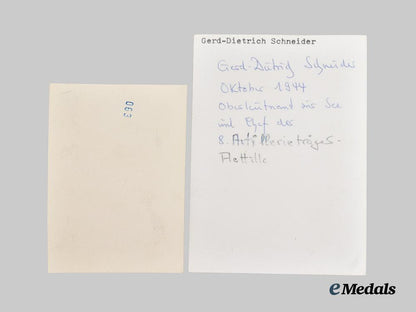 063
Gerd-Dietrich Schneider
Gerd-Dietrich Schneider
Oktober 1944
Oberleutnant zur See
und Chef der
8. Artillerieträger-
Flottille
eMedals